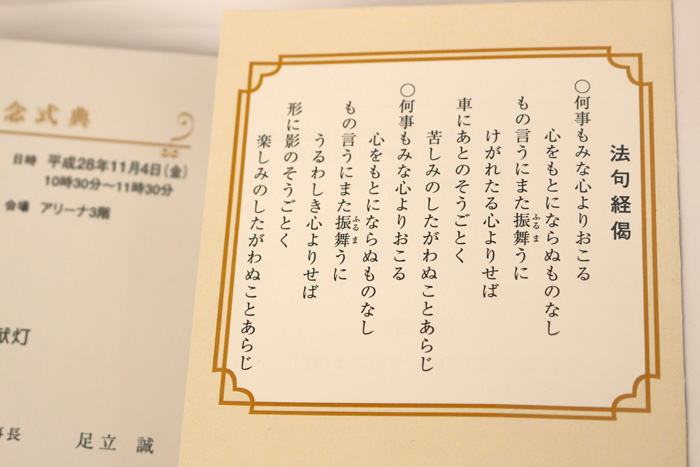 念式典
日時 平成28年11月4日(金)
10時30分～11時30分
会場 アリーナ3階
献灯
事長 足立 誠
法句経偈
○何事もみな心よりおこる
心をもとにならぬものなし
もの言うにまた振舞うに
ふるま
けがれたる心よりせば
車にあとのそうごとく
苦しみのしたがわぬことあらじ
○何事もみな心よりおこる
心をもとにならぬものなし
もの言うにまた振舞うに
ふるま
うるわしき心よりせば
形に影のそうごとく
楽しみのしたがわぬことあらじ